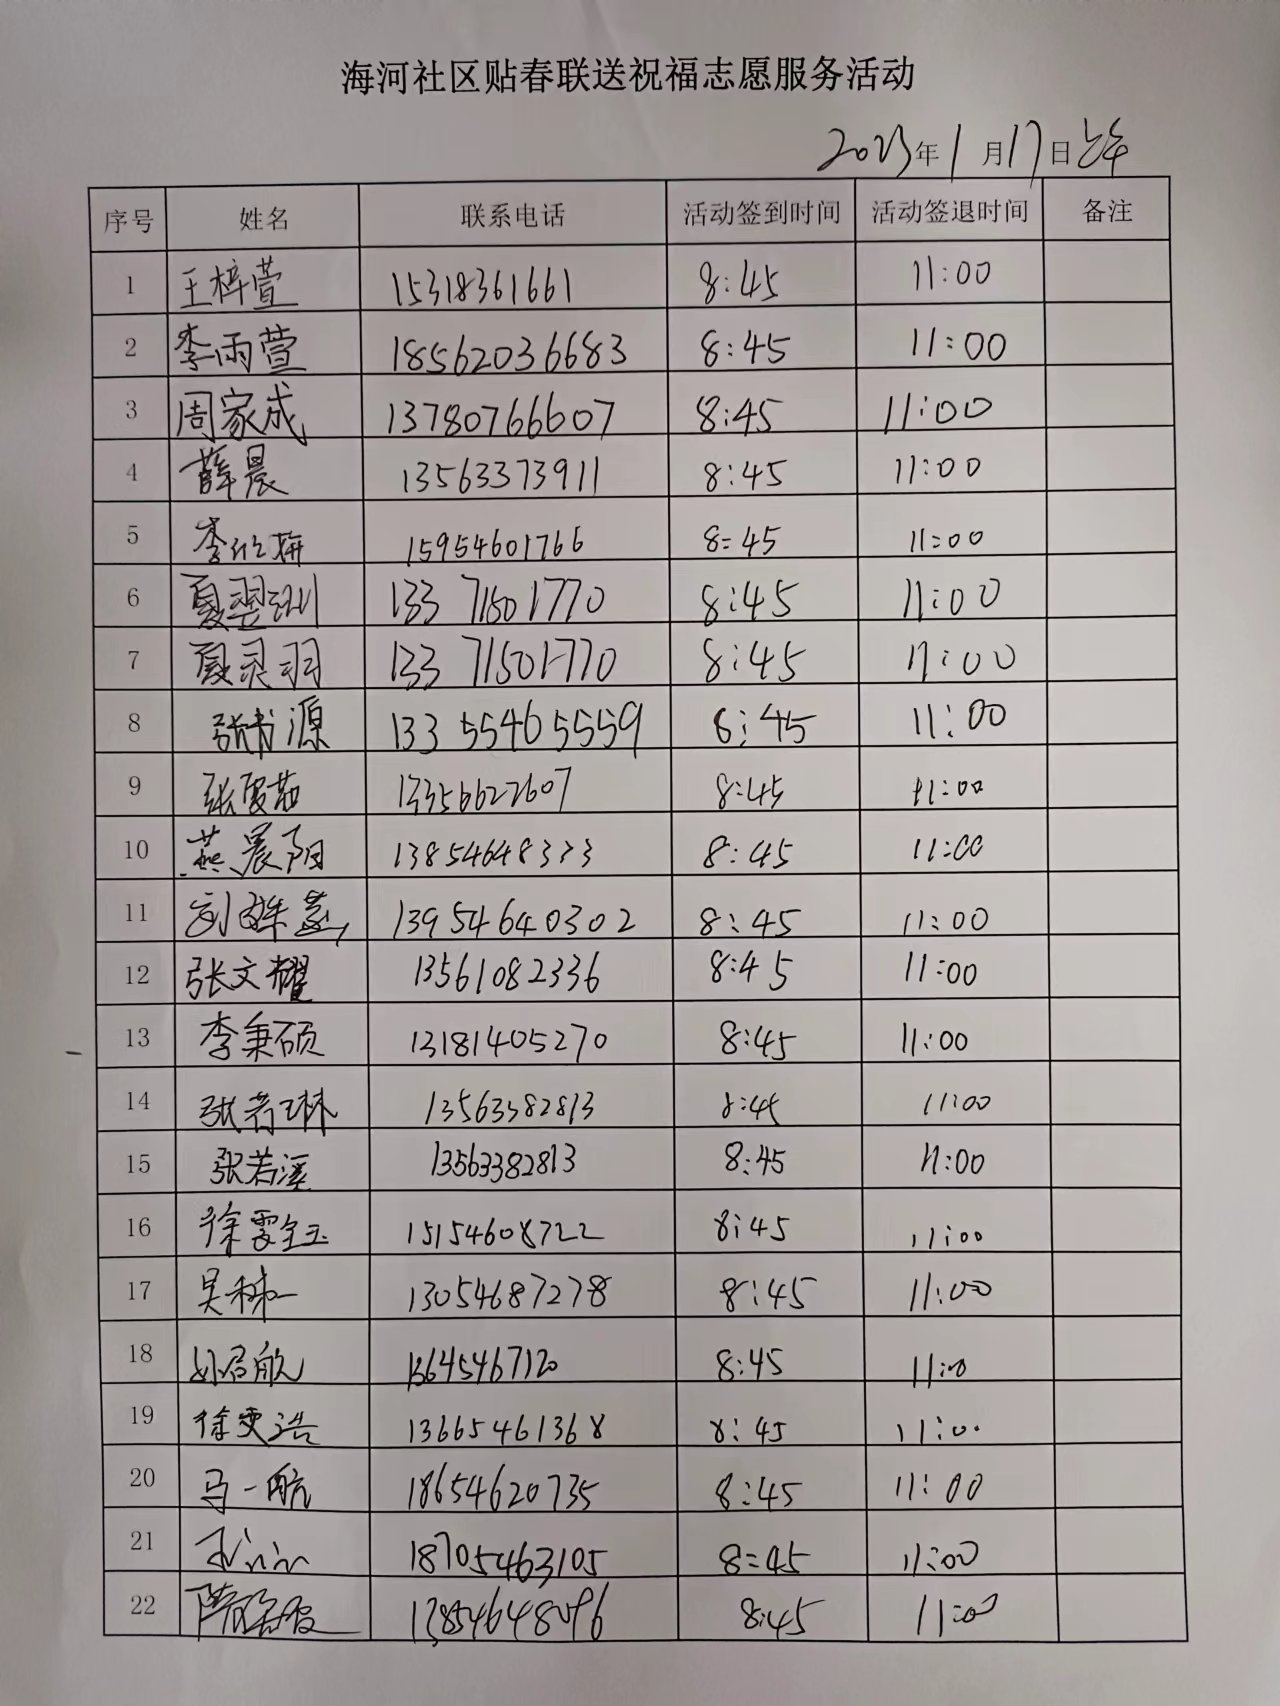 海河社区贴春联送祝福志愿服务活动
2023年1月17日上午
序号 姓名 联系电话 活动签到时间 活动签退时间 备注
1 王梓萱 15318361661 8:45 11:00
2 李雨萱 18562036683 8:45 11:00
3 周家成 13780766607 8:45 11:00
4 薛晨 13563373911 8:45 11:00
5 15954601766 8:45 11:00
6 13371501770 8:45 11:00
7 夏灵羽 13371501770 8:45 11:00
8 张书源 13355465559 8:45 11:00
9 13356627607 8:45 11:00
10 燕晨阳 13854648333 8:45 11:00
11 13954640302 8:45 11:00
12 张文耀 13561082336 8:45 11:00
13 李秉硕 13181405270 8:45 11:00
14 张若琳 13563382813 8:45 11:00
15 张若溪 13563382813 8:45 11:00
16 15154608722 8:45 11:00
17 13054687278 8:45 11:00
18 13645467120 8:45 11:00
19 13665461368 8:45 11:00
20 马一航 18654620735 8:45 11:00
21 18705463105 8:45 11:00
22 13854648096 8:45 11:00